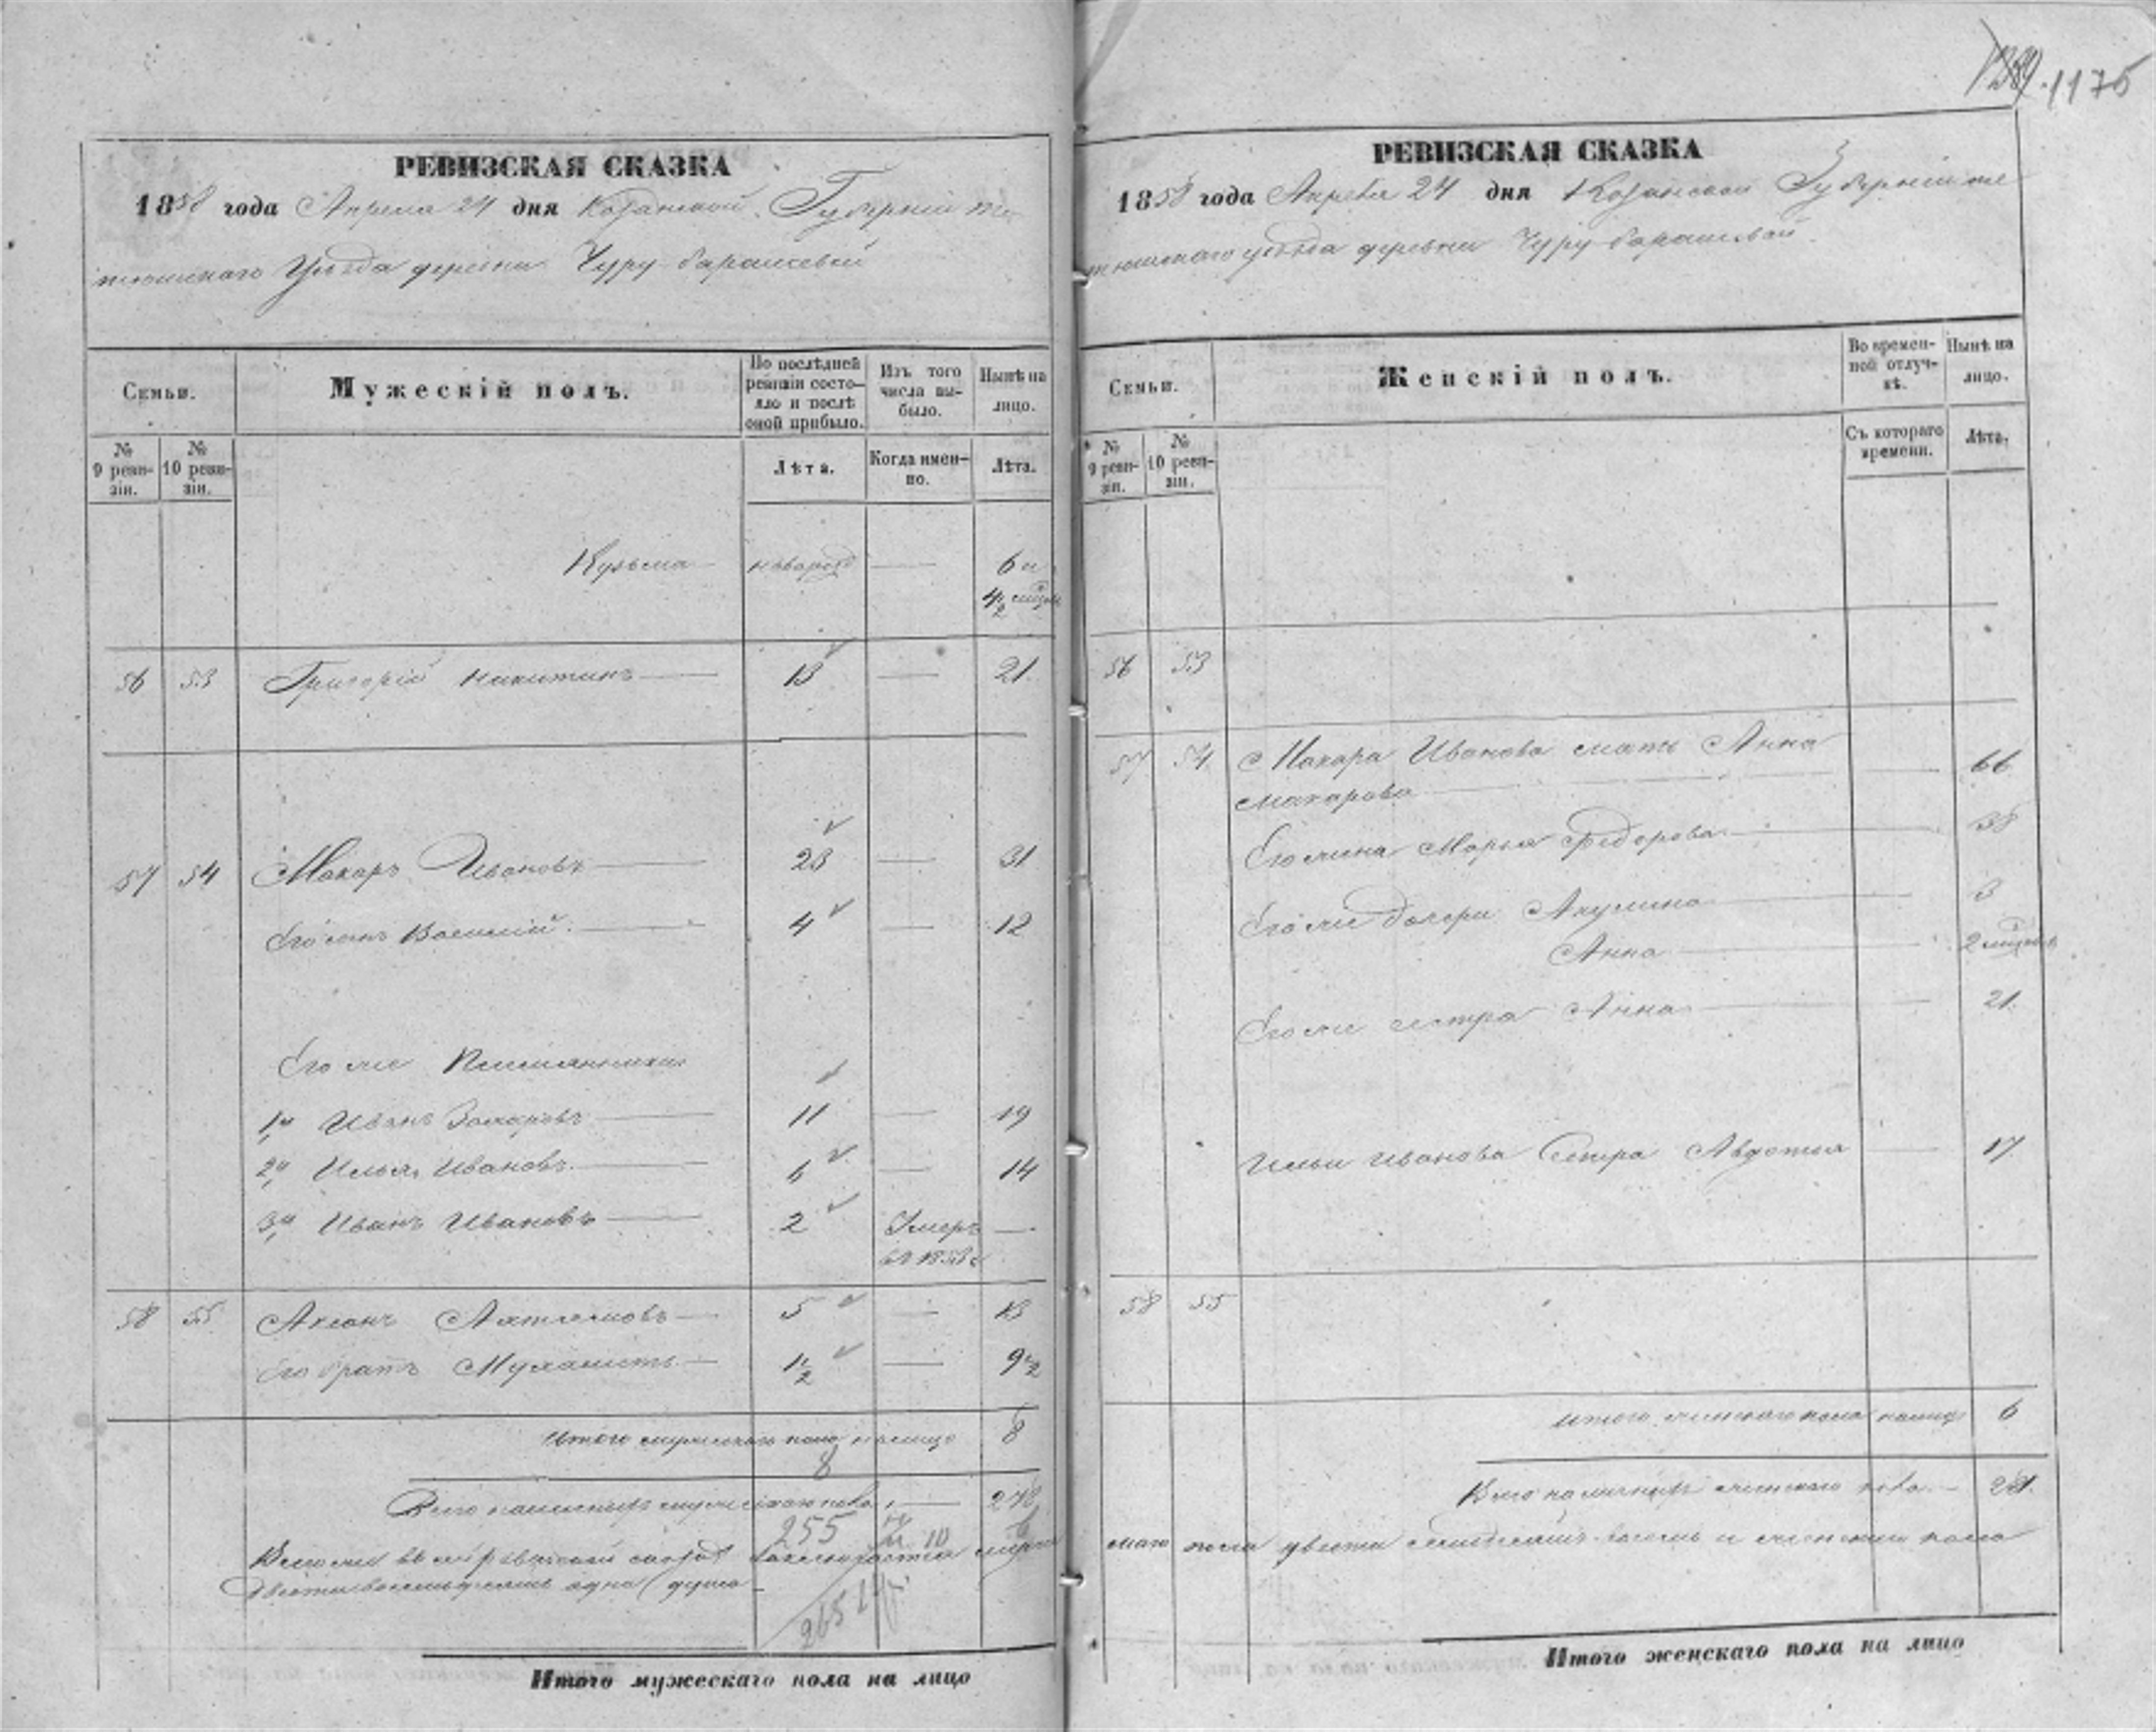 1175
РЕВИЗСКАЯ СКАЗКА
1858 года Апреля 24 дня Казанской Губерніи те-
тюшскаго Уѣзда деревни Чуру-барышевой
Семьи.
Мужескій полъ.
По послѣдней ревизіи состояло и послѣ оной прибыло.
Изъ того числа выбыло.
Нынѣ на лицо.
№ 9 ревизіи.
№ 10 ревизіи.
Лѣта.
Когда именно.
Лѣта.
Кузьма новорожд 6 и
4 1/2
56 53 Григорій Никитинъ 13 21
57 54 Макаръ Ивановъ 23 31
Его сынъ Василій 4 12
Его же Племянники
1й Иванъ Захаровъ 11 19
2й Илья Ивановъ 6 14
3й Иванъ Ивановъ 2 Умеръ
въ 1853 г
58 55 Ахтямовъ 5 13
Его братъ 1 1/2 9 1/2
Итого мужескаго пола налицо 8
8
Всего наличныхъ мужескаго пола 278
255 10
Всего же въ сей ревизской сказкѣ заключается муже-
265
Итого мужескаго пола на лицо
РЕВИЗСКАЯ СКАЗКА
1858 года Апреля 24 дня Казанской Губерніи те-
тюшскаго уѣзда деревни Чуру-барышевой
Семьи.
Женскій полъ.
Во временной отлучкѣ.
Нынѣ на лицо.
№ 9 ревизіи.
№ 10 ревизіи.
Съ котораго времени.
Лѣта.
56 53
57 54 Макара Иванова мать Анна
Макарова 66
Его жена Марья Федорова 38
Его же дочери Акулина 3
Анна 2 мѣсяц
Его же сестра Анна 21
Ильи Иванова Сестра Авдотья 17
58 55
Итого женскаго пола налицо 6
Всего наличныхъ женскаго пола 281
скаго пола двести семдесятъ восемь и женскаго пола
двести восемьдесятъ одна душа
Итого женскаго пола на лицо